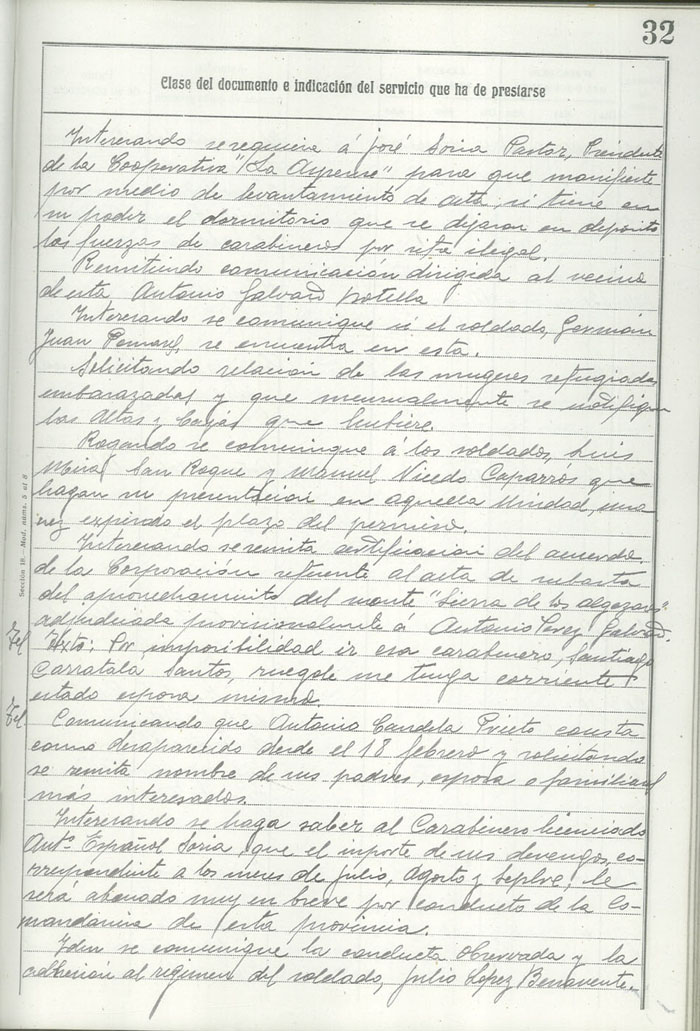 32
Clase del documento e indicación del servicio que ha de prestarse
Interesando se requiera á José Soria Pastor, Presidente
de la Cooperativa "La Aspense" para que manifieste
por medio de levantamiento de acta, si tiene en
su poder el dormitorio que se dejaron en depósito
las fuerzas de carabineros por ilegal.
Remitiendo comunicación dirigida al vecino
de esta Antonio Galvañ Botella
Interesando se comunique si el soldado, Germán
Juan Pomares, se encuentra en esta.
Solicitando relación de las mugeres refugiadas
embarazadas y que mensualmente se notifiquen
las Altas y Bajas que hubiere.
Rogando se comunique á los soldados, Luis
Mira San Roque y Manuel Vicedo Caparrós que
hagan su presentacion en aquella Unidad, una
vez expirado el plazo del permiso.
Interesando se remita certificacion del acuerdo
de la Corporación referente al acta de subasta
del aprovechamiento del monte "Sierra de los algezares"
adjudicada provisionalmente á Antonio Perez Galvañ.
Tel Txto: Por imposibilidad ir esa carabinero, Santiago
Carratala Santos, ruegole me tenga corriente
estado esposa mismo.
Tel Comunicando que Antonio Candela Prieto consta
como desaparecido desde el 18 febrero y solicitando
se remita nombre de sus padres, esposa o familiares
más interesados.
Interesando se haga saber al Carabinero licenciado
Antº Español Soria, que el inporte de sus devengos, co-
rrespondiente a los meses de julio, Agosto y Sepbre, le
será abonado muy en breve por conducto de la Co-
mandancia de esta provincia.
Idem se comunique la conducta observada y la
adhesion al régimen del soldado, Julio Lopez Benavente.
Sección 18.-Mod. núms. 5 al 8